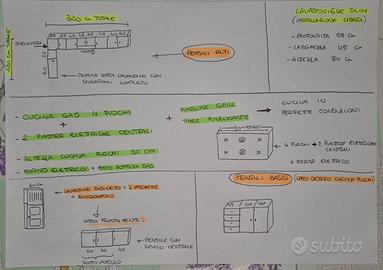 320 cm TOTALE
LAVASTOVIGLIE SLIM
(INSTALLAZIONE LIBERA)
- PROFONDITÀ 58 cm
- LARGHEZZA 45 cm
- ALTEZZA 84 cm
PENSILI ALTI
- PENSILE SOPRA LAVANDINO CON
SCOLAPIATTI COMPLETO
- CUCINA GAS 4 FUOCHI
+
- 2 PIASTRE ELETTRICHE CENTRALI
- ALTEZZA CUCINA FUOCHI 90 cm
- FORNO ELETTRICO + VANO BOMBOLA GAS
+
FUNZIONE GRILL
TIMER FUNZIONANTE
CUCINA IN
PERFETTE CONDIZIONI
4 FUOCHI + 2 PIASTRE ELETTRICHE
CENTRALI
+ FORNO ELETTRICO
LAVANDINO
+ 2 VASCHETTE
+ GOCCIOLATOIO
VISTO FRONTALMENTE:
- PENSILE CON
CENTRALE
40 40 40
SOTTOLAVELLO
PENSILI BASSI
(LATO DESTRO CUCINA FUOCHI)
45 40 40
subito